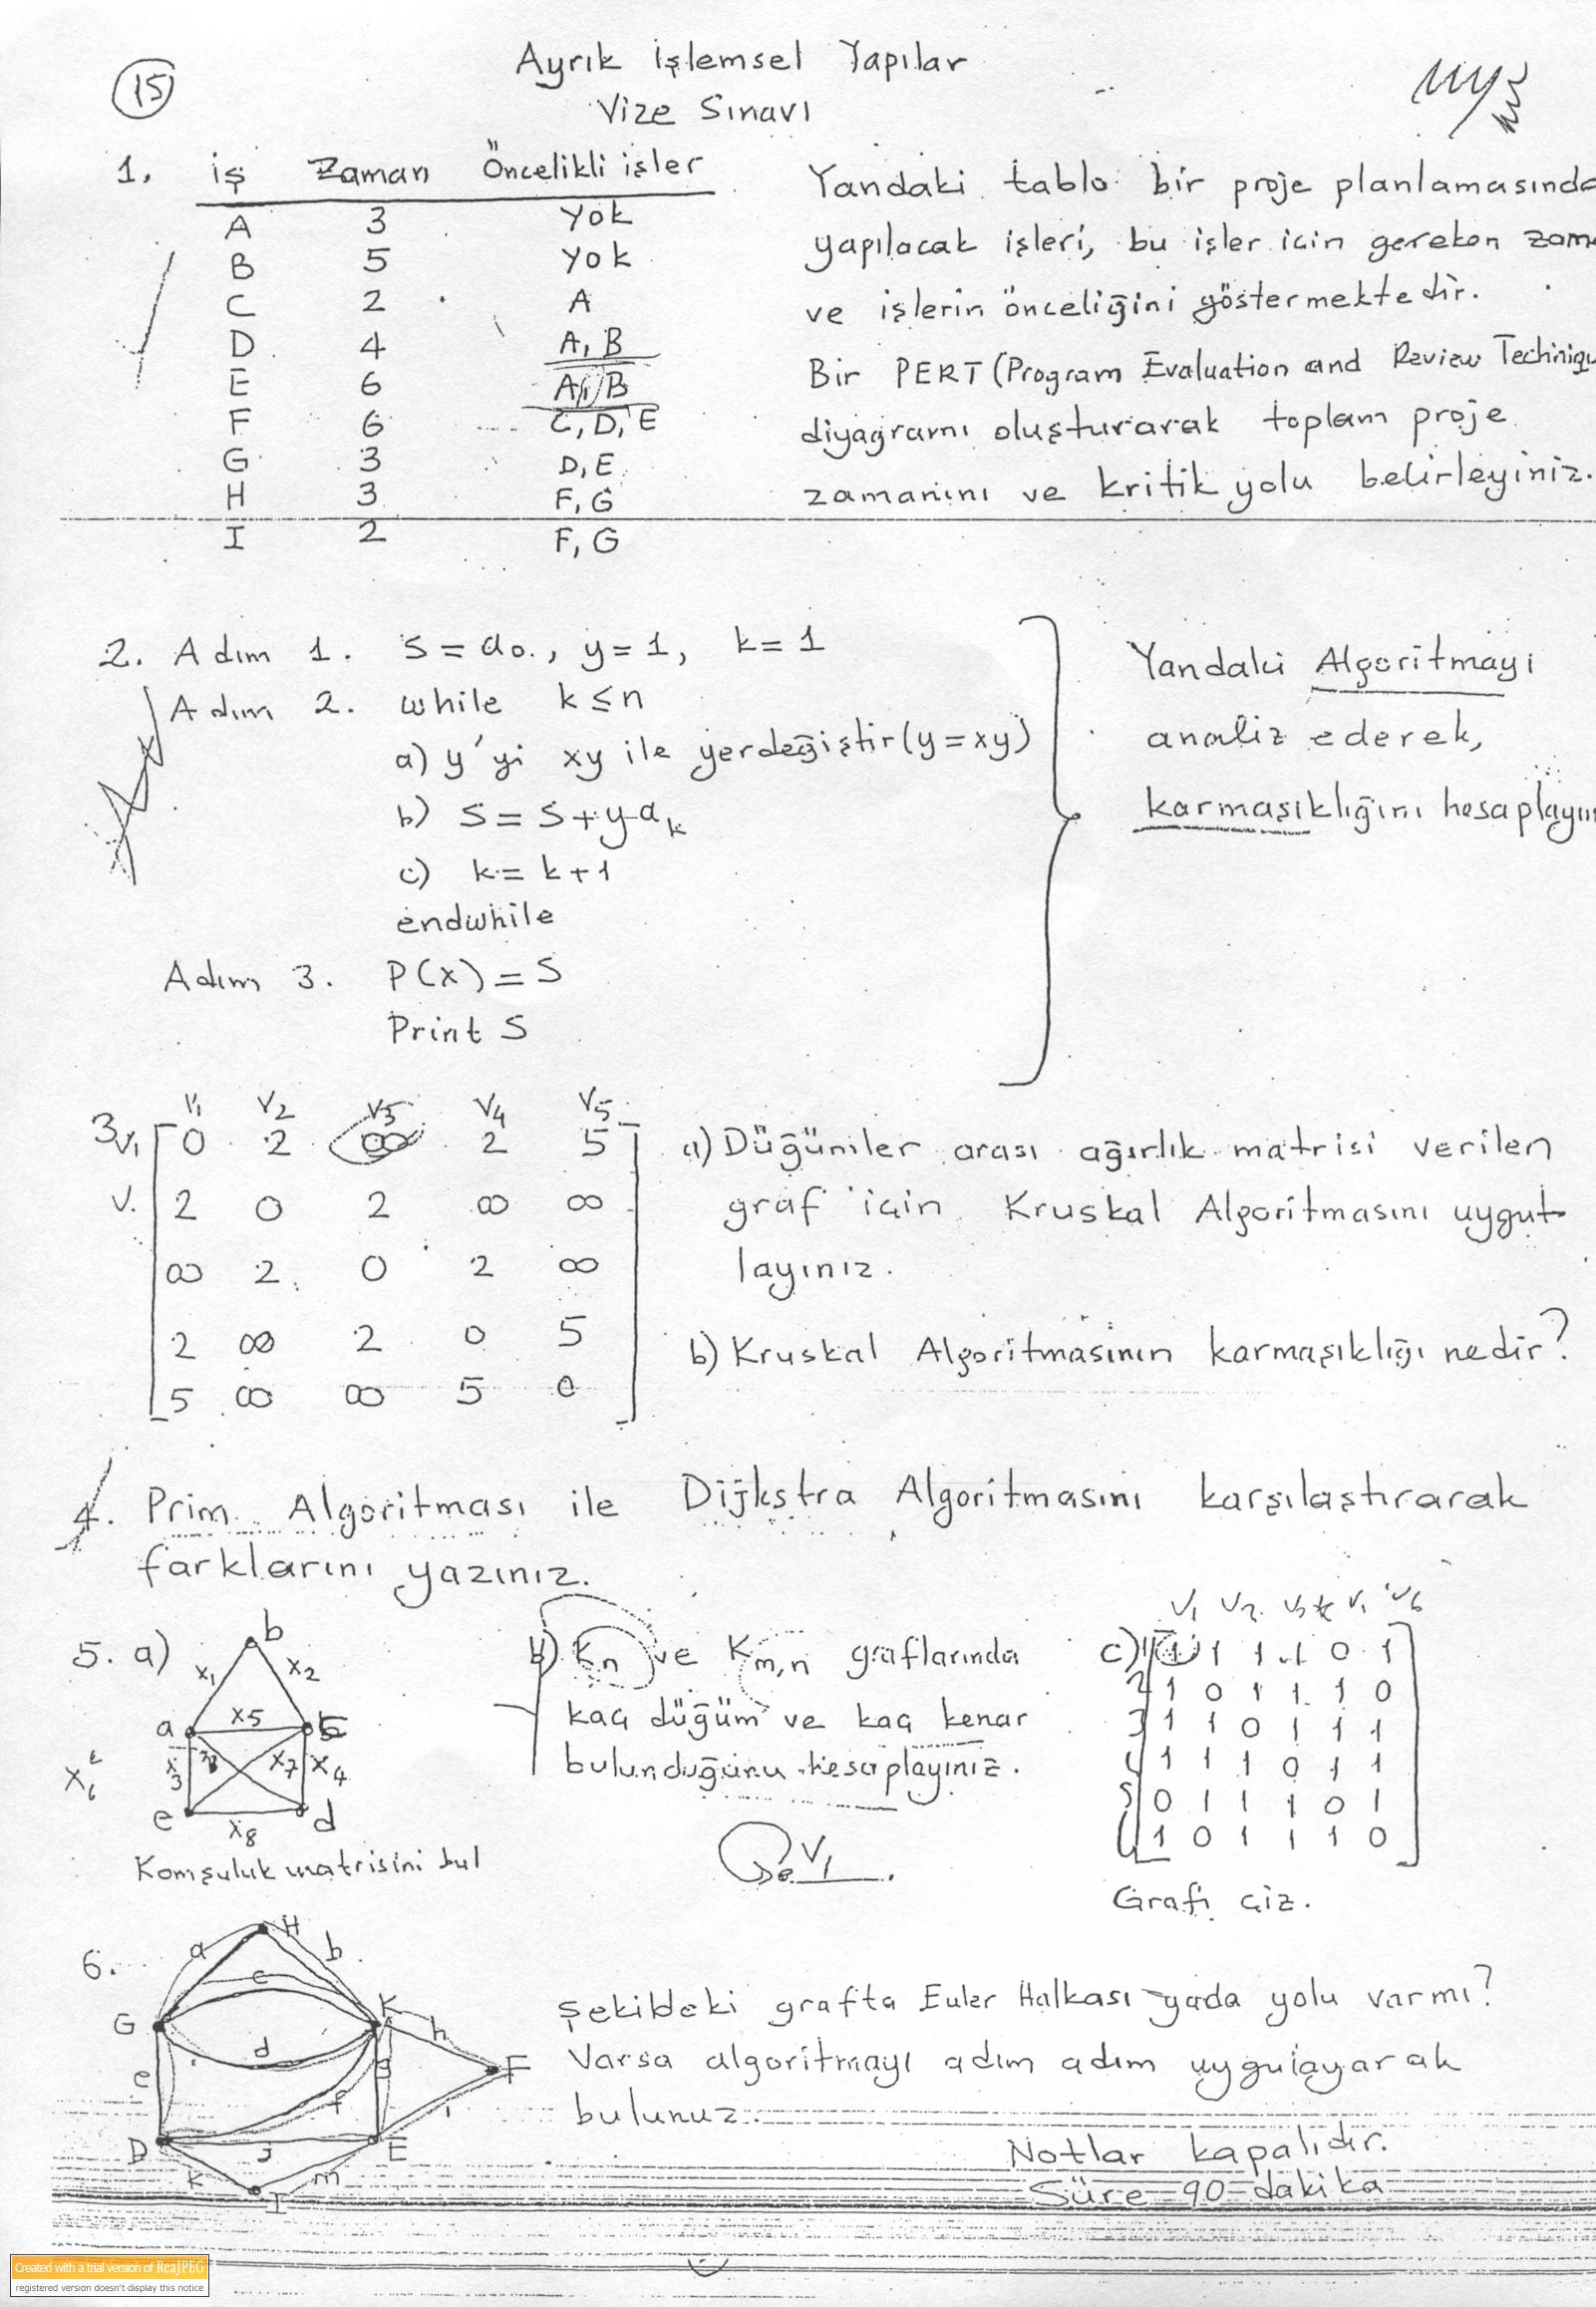 15
Ayrık işlemsel Yapılar
Vize Sınavı
1. iş Zaman Öncelikli işler
A 3 Yok
B 5 Yok
C 2 A
D 4 A, B
E 6 A, B
F 6 C, D, E
G 3 D, E
H 3 F, G
I 2 F, G
Yandaki tablo bir proje planlamasında
yapılacak işleri, bu işler için gereken zam
ve işlerin önceliğini göstermektedir.
Bir PERT (Program Evaluation and Review Techniqu
diyagramı oluşturarak toplam proje
zamanını ve kritik yolu belirleyiniz.
2. Adım 1. S = a0., y = 1, k = 1
Adım 2. while k ≤ n
a) y'yi xy ile yerdeğiştir (y = xy)
b) S = S + y ak
c) k = k + 1
endwhile
Adım 3. P(x) = S
Print S
Yandaki Algoritmayı
analiz ederek,
karmaşıklığını hesaplayın
3 V1 V2 V3 V4 V5
V1 0 2 ∞ 2 5
V. 2 0 2 ∞ ∞
∞ 2 0 2 ∞
2 ∞ 2 0 5
5 ∞ ∞ 5 0
a) Düğümler arası ağırlık matrisi verilen
graf için Kruskal Algoritmasını uygu
layınız.
b) Kruskal Algoritmasının karmaşıklığı nedir?
4. Prim Algoritması ile Dijkstra Algoritmasını karşılaştırarak
farklarını yazınız.
5. a)
b
x1 x2
a x5
x3 x7 x4
e x8 d
Komşuluk matrisini bul
b) Kn ve Km,n graflarında
kaç düğüm ve kaç kenar
bulunduğunu hesaplayınız.
c)
1 1 1 1 0 1
2 1 0 1 1 1 0
3 1 1 0 1 1 1
4 1 1 1 0 1 1
5 0 1 1 1 0 1
6 1 0 1 1 1 0
Grafı çiz.
6.
H
a b
c
G K
d h
e g F
f i
D j E
k m
I
Şekildeki grafta Euler Halkası yada yolu varmı?
Varsa algoritmayı adım adım uygulayarak
bulunuz.
Notlar kapalıdır.
Süre 90 dakika
Created with a trial version of ReaJPEG
registered version doesn't display this notice